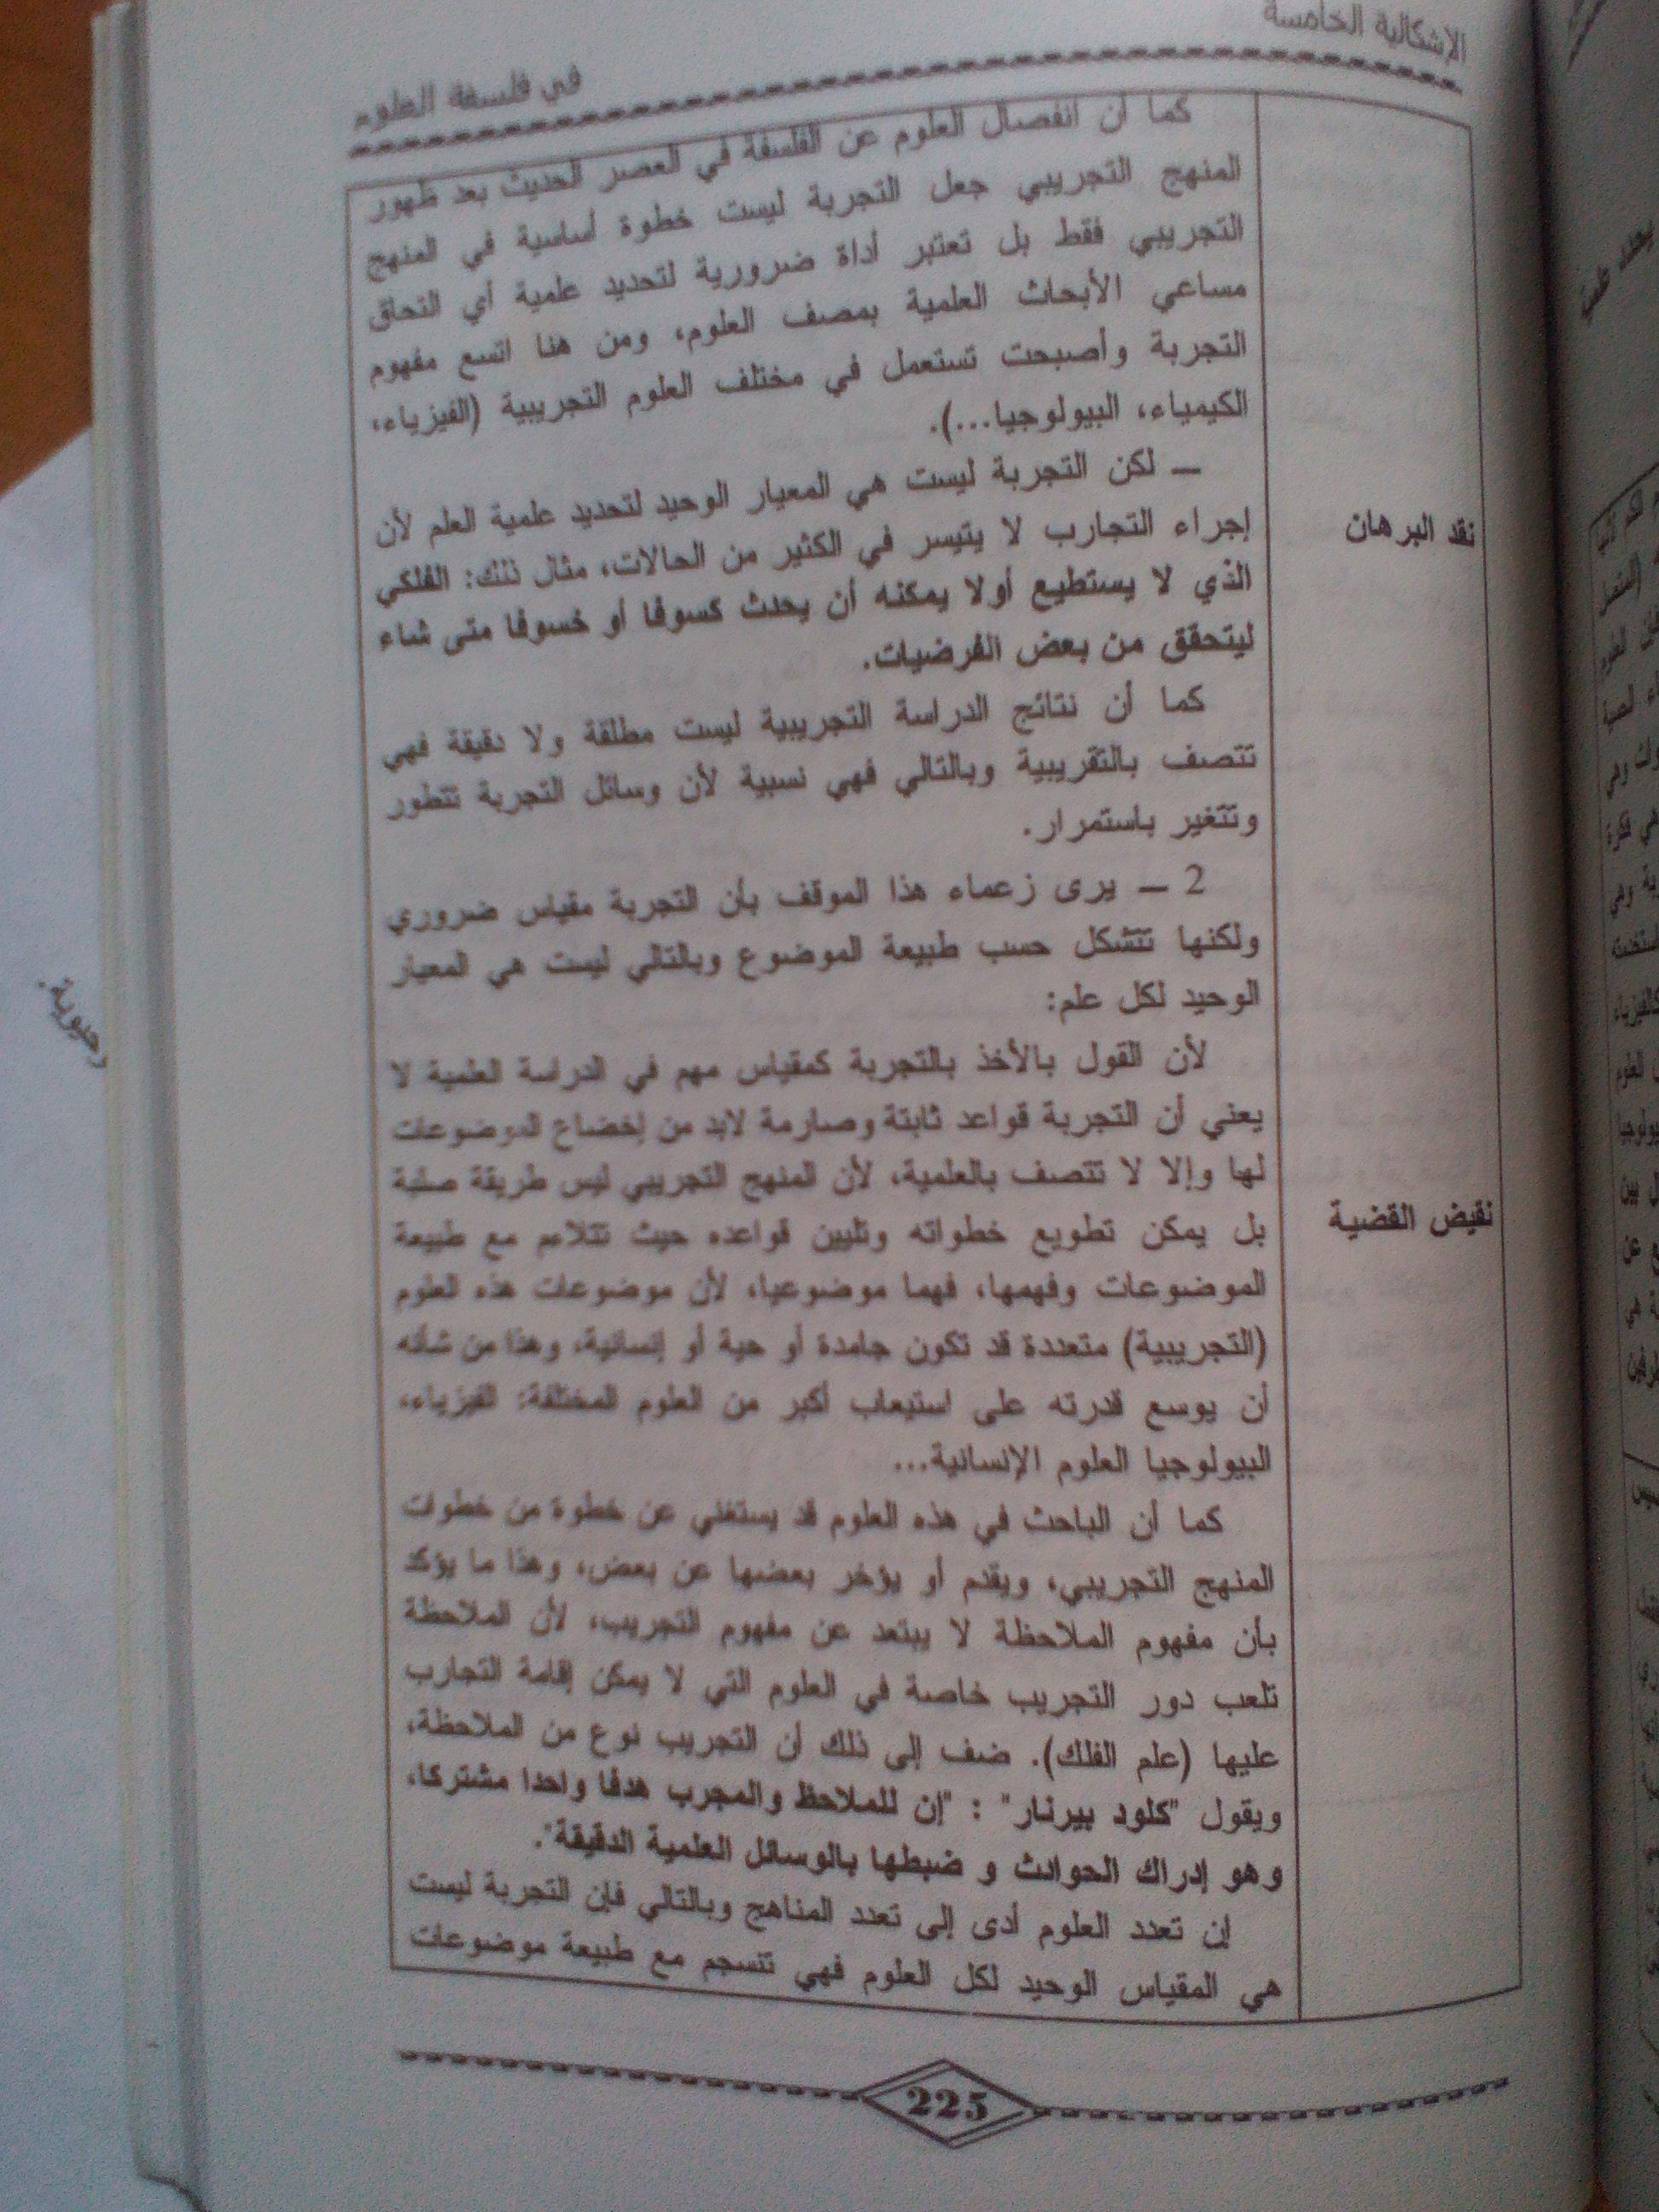 الإشكالية الخامسة
في فلسفة العلوم
كما أن انفصال العلوم عن الفلسفة في العصر الحديث بعد ظهور
المنهج التجريبي جعل التجربة ليست خطوة أساسية في المنهج
التجريبي فقط بل تعتبر أداة ضرورية لتحديد علمية أي التحاق
مساعي الأبحاث العلمية بمصف العلوم، ومن هنا اتسع مفهوم
التجربة وأصبحت تستعمل في مختلف العلوم التجريبية (الفيزياء،
الكيمياء، البيولوجيا...).
نقد البرهان
ـ لكن التجربة ليست هي المعيار الوحيد لتحديد علمية العلم لأن
إجراء التجارب لا يتيسر في الكثير من الحالات، مثال ذلك: الفلكي
الذي لا يستطيع أولا يمكنه أن يحدث كسوفا أو خسوفا متى شاء
ليتحقق من بعض الفرضيات.
كما أن نتائج الدراسة التجريبية ليست مطلقة ولا دقيقة فهي
تتصف بالتقريبية وبالتالي فهي نسبية لأن وسائل التجربة تتطور
وتتغير باستمرار.
2 ـ يرى زعماء هذا الموقف بأن التجربة مقياس ضروري
ولكنها تتشكل حسب طبيعة الموضوع وبالتالي ليست هي المعيار
الوحيد لكل علم:
لأن القول بالأخذ بالتجربة كمقياس مهم في الدراسة العلمية لا
يعني أن التجربة قواعد ثابتة وصارمة لابد من إخضاع الموضوعات
لها وإلا لا تتصف بالعلمية، لأن المنهج التجريبي ليس طريقة صلبة
نقيض القضية
بل يمكن تطويع خطواته وتليين قواعده حيث تتلاءم مع طبيعة
الموضوعات وفهمها، فهما موضوعيا، لأن موضوعات هذه العلوم
(التجريبية) متعددة قد تكون جامدة أو حية أو إنسانية، وهذا من شأنه
أن يوسع قدرته على استيعاب أكبر من العلوم المختلفة: الفيزياء،
البيولوجيا العلوم الإنسانية...
كما أن الباحث في هذه العلوم قد يستغني عن خطوة من خطوات
المنهج التجريبي، ويقدم أو يؤخر بعضها عن بعض، وهذا ما يؤكد
بأن مفهوم الملاحظة لا يبتعد عن مفهوم التجريب، لأن الملاحظة
تلعب دور التجريب خاصة في العلوم التي لا يمكن إقامة التجارب
عليها (علم الفلك). ضف إلى ذلك أن التجريب نوع من الملاحظة،
ويقول "كلود بيرنار" : "إن للملاحظ والمجرب هدفا واحدا مشتركا،
وهو إدراك الحوادث و ضبطها بالوسائل العلمية الدقيقة".
إن تعدد العلوم أدى إلى تعدد المناهج وبالتالي فإن التجربة ليست
هي المقياس الوحيد لكل العلوم فهي تنسجم مع طبيعة موضوعات
225